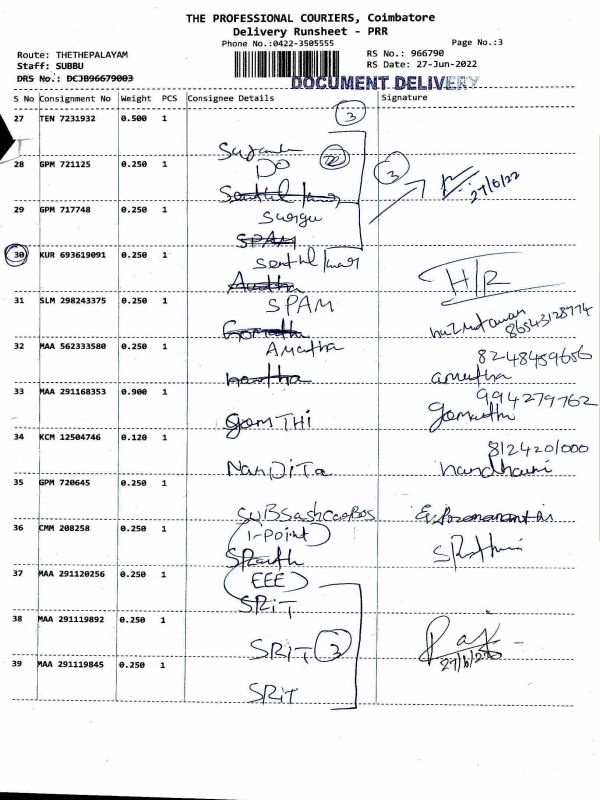 THE PROFESSIONAL COURIERS, Coimbatore
Delivery Runsheet - PRR
Phone No.:0422-3505555 Page No.:3
Route: THETHEPALAYAM RS No.: 966790
Staff: SUBBU RS Date: 27-Jun-2022
DRS No.: DCJB96679003
DOCUMENT DELIVERY
S No Consignment No Weight PCS Consignee Details Signature
27 TEN 7231932 0.500 1
3
Sujanta
28 GPM 721125 0.250 1
Do
3
27/6/22
Senthil kumar
29 GPM 717748 0.250 1
Surya
SPAM
30 KUR 693619091 0.250 1
Senthil kumar
H/R
31 SLM 298243375 0.250 1
SPAM
86543128774
Gomathi
32 MAA 562333580 0.250 1
Amutha
8248459656
amutha
33 MAA 291168353 0.900 1
994279762
GomTHI
Gomathi
34 KCM 12504746 0.120 1
8124201000
NanDiTa
nandhini
35 GPM 720645 0.250 1
36 CMM 208258 0.250 1
I-Point
37 MAA 291120256 0.250 1
EEE
SRiT
38 MAA 291119892 0.250 1
SRiT 3
27/6/22
39 MAA 291119845 0.250 1
SRiT